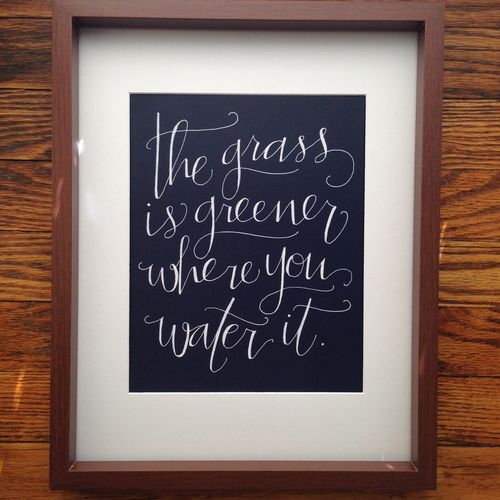 the grass
is greener
where you
water it.